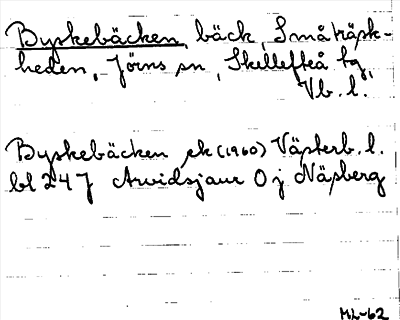 Byskebäcken, bäck, Småträsk-
heden, Jörns sn, Skellefteå tg,
Vb. l.
Byskebäcken ek (1960) Västerb. l.
bl 24 J Arvidsjaur Ö j Näsberg
ML-62